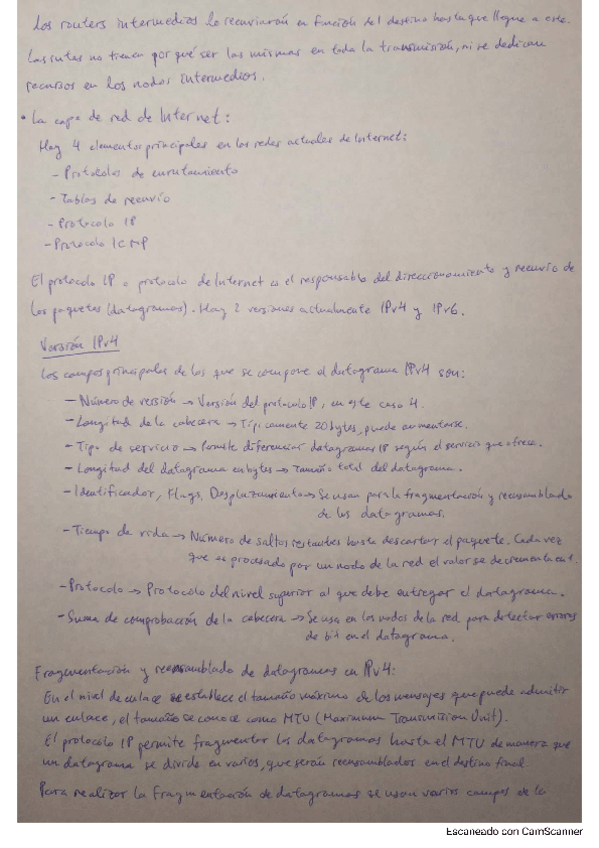 Los routers intermedios lo reenviarán en función del destino hasta que llegue a este.
Las rutas no tienen por qué ser las mismas en toda la transmisión, ni se dedican
recursos en los nodos intermedios.
• La capa de red de Internet:
Hay 4 elementos principales en las redes actuales de Internet:
- Protocolos de enrutamiento
- Tablas de reenvío
- Protocolo IP
- Protocolo ICMP
El protocolo IP o protocolo de Internet es el responsable del direccionamiento y reenvío de
los paquetes (datagramas). Hay 2 versiones actualmente IPv4 y IPv6.
Versión IPv4
Los campos principales de los que se compone el datagrama IPv4 son:
- Número de versión → Versión del protocolo IP, en este caso 4.
- Longitud de la cabecera → Típicamente 20 bytes, puede aumentarse.
- Tipo de servicio → Permite diferenciar datagramas IP según el servicio que ofrece.
- Longitud del datagrama en bytes → Tamaño total del datagrama.
- Identificador, Flags, Desplazamiento → Se usan para la fragmentación y reensamblado
de los datagramas.
- Tiempo de vida → Número de saltos restantes hasta descartar el paquete. Cada vez
que es procesado por un nodo de la red el valor se decrementa en 1.
- Protocolo → Protocolo del nivel superior al que debe entregar el datagrama.
- Suma de comprobación de la cabecera → Se usa en los nodos de la red para detectar errores
de bit en el datagrama.
Fragmentación y reensamblado de datagramas en IPv4:
En el nivel de enlace se establece el tamaño máximo de los mensajes que puede admitir
un enlace, el tamaño se conoce como MTU (Maximum Transmission Unit).
El protocolo IP permite fragmentar los datagramas hasta el MTU de manera que
un datagrama se divide en varios, que serán reensamblados en el destino final.
Para realizar la fragmentación de datagramas se usan varios campos de la
Escaneado con CamScanner